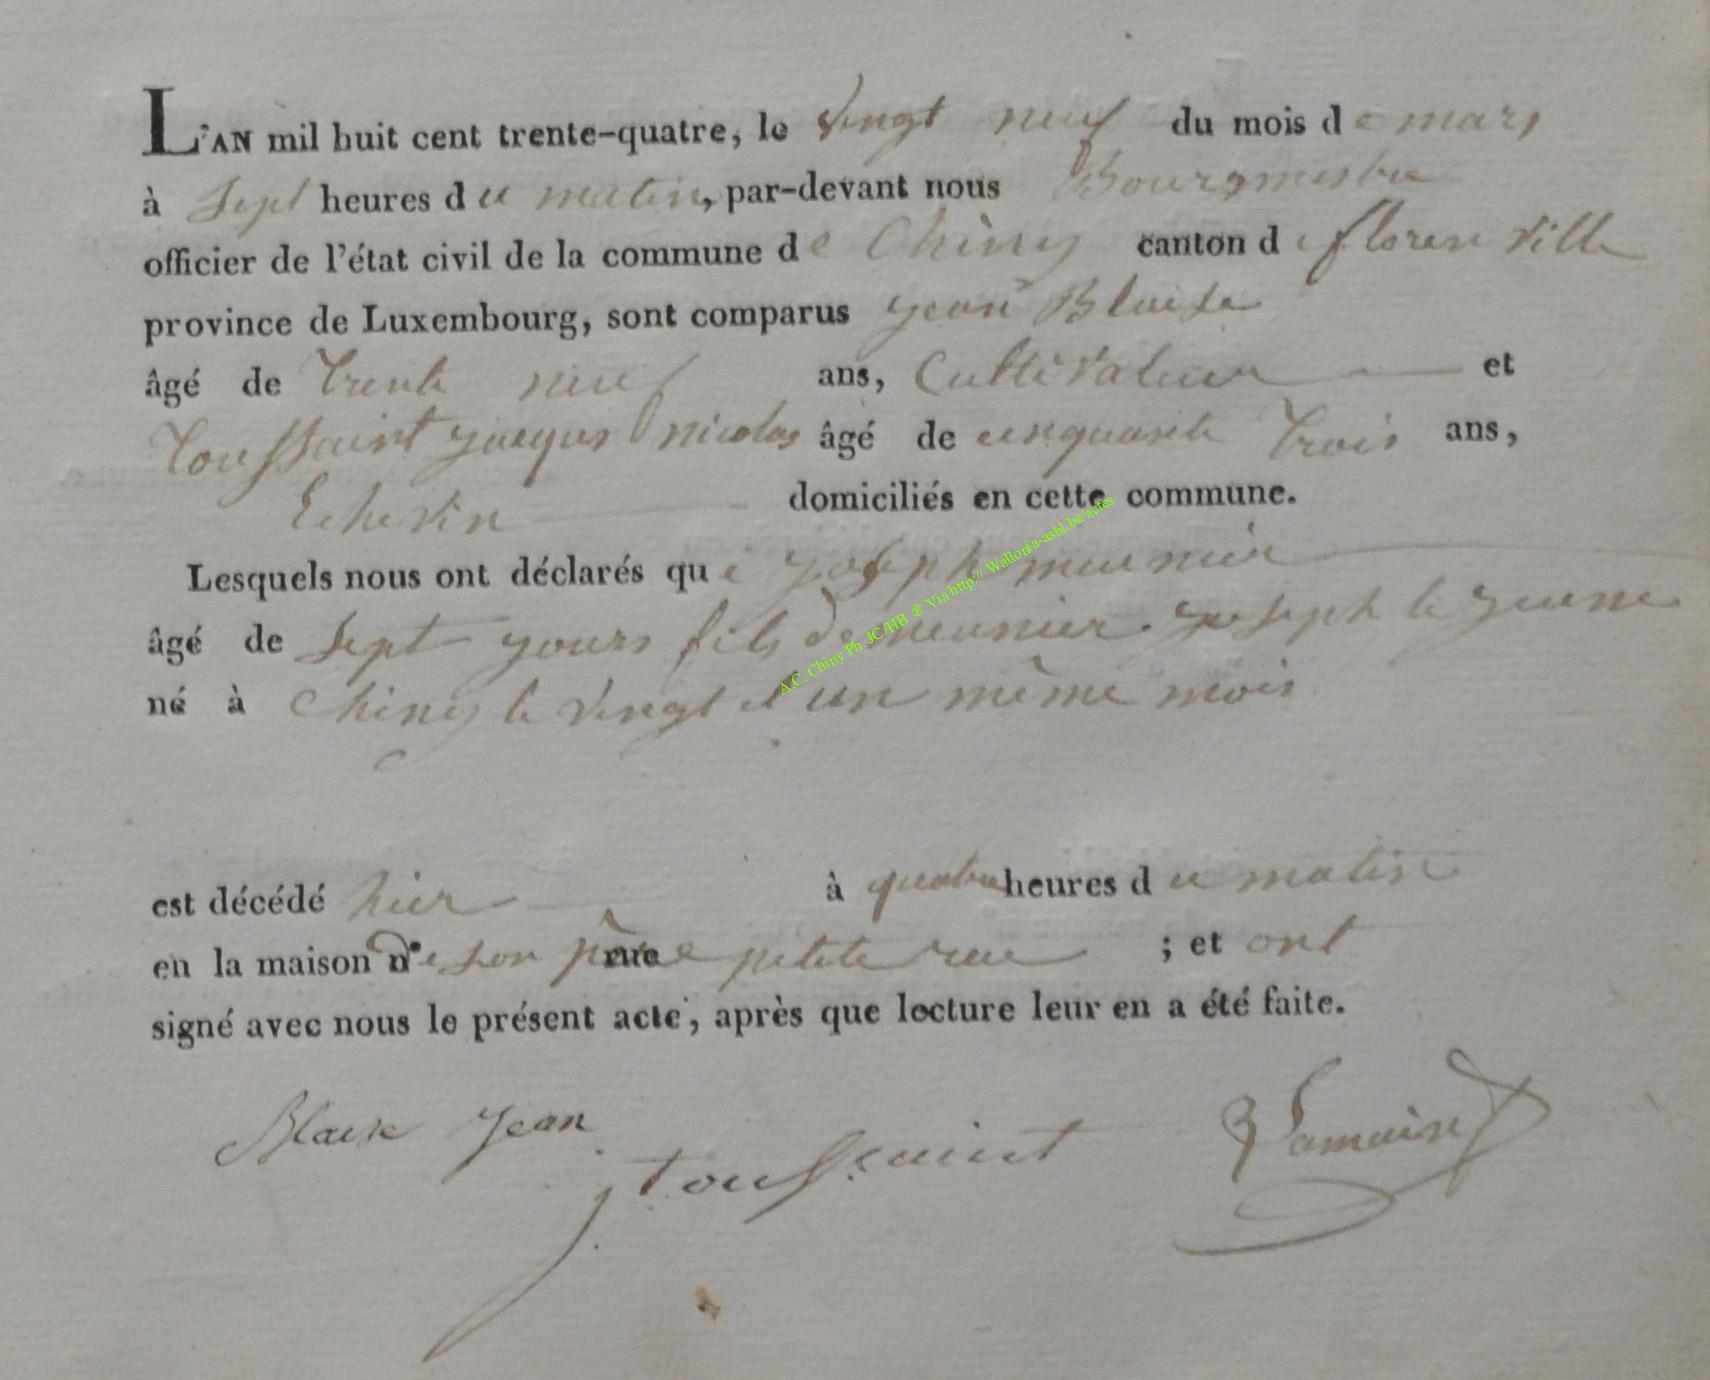 L'AN mil huit cent trente-quatre, le vingt neuf du mois de mars
à Sept heures du matin, par-devant nous Bourgmestre
officier de l'état civil de la commune de Chiny canton de florenville
province de Luxembourg, sont comparus jean Blaise
âgé de trente neuf ans, Cultivateur et
Toussaint jacques nicolas âgé de cinquante trois ans,
Echevin domiciliés en cette commune.
Lesquels nous ont déclarés que joseph meunier
âgé de Sept jours fils de meunier joseph le jeune
né à Chiny le vingt et un même mois
est décédé hier à quatre heures du matin
en la maison n° de son père rue petite rue ; et ont
signé avec nous le présent acte, après que lecture leur en a été faite.
Blaise jean
j toussaint
A.C. Chiny Ph JC/HB ® Via http:// Wallonia-asbl.be/actes